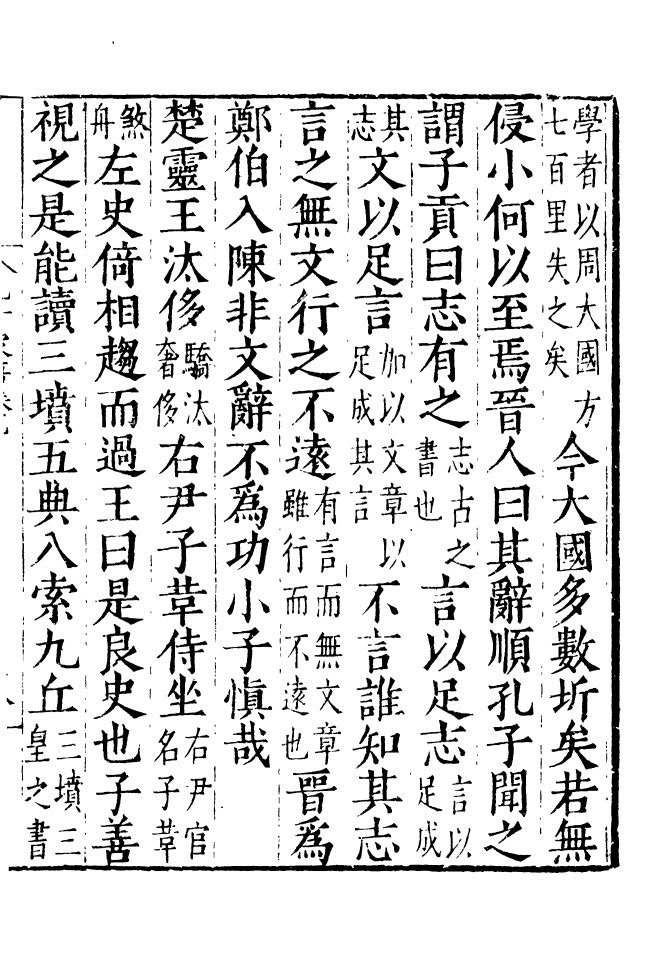 學者以周大國方七百里失之矣今大國多數圻矣若無
侵小何以至焉晉人曰其辭順孔子聞之
謂子貢曰志有之志古之書也言以足志言以足成
其志文以足言加以文章以足成其言不言誰知其志
言之無文行之不遠有言而無文章雖行而不遠也晉為
鄭伯入陳非文辭不為功小子慎哉
楚靈王汰侈驕汰奢侈右尹子葦侍坐右尹官名子葦
煞舟左史倚相趨而過王曰是良史也子善
視之是能讀三墳五典八索九丘三墳三皇之書